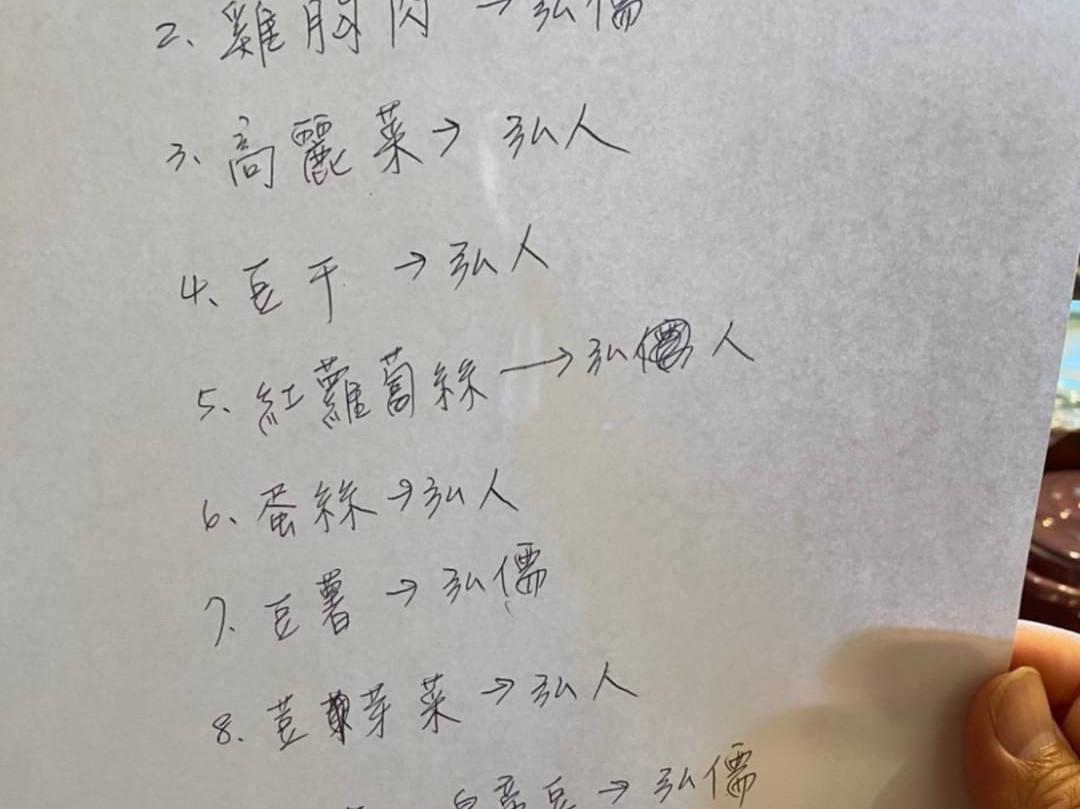 2、雞胸肉→弘儒
3、高麗菜→弘人
4、豆干→弘人
5、紅蘿蔔絲→弘人
6、蛋絲→弘人
7、豆薯→弘儒
8、荳芽菜→弘人
皇帝豆→弘儒